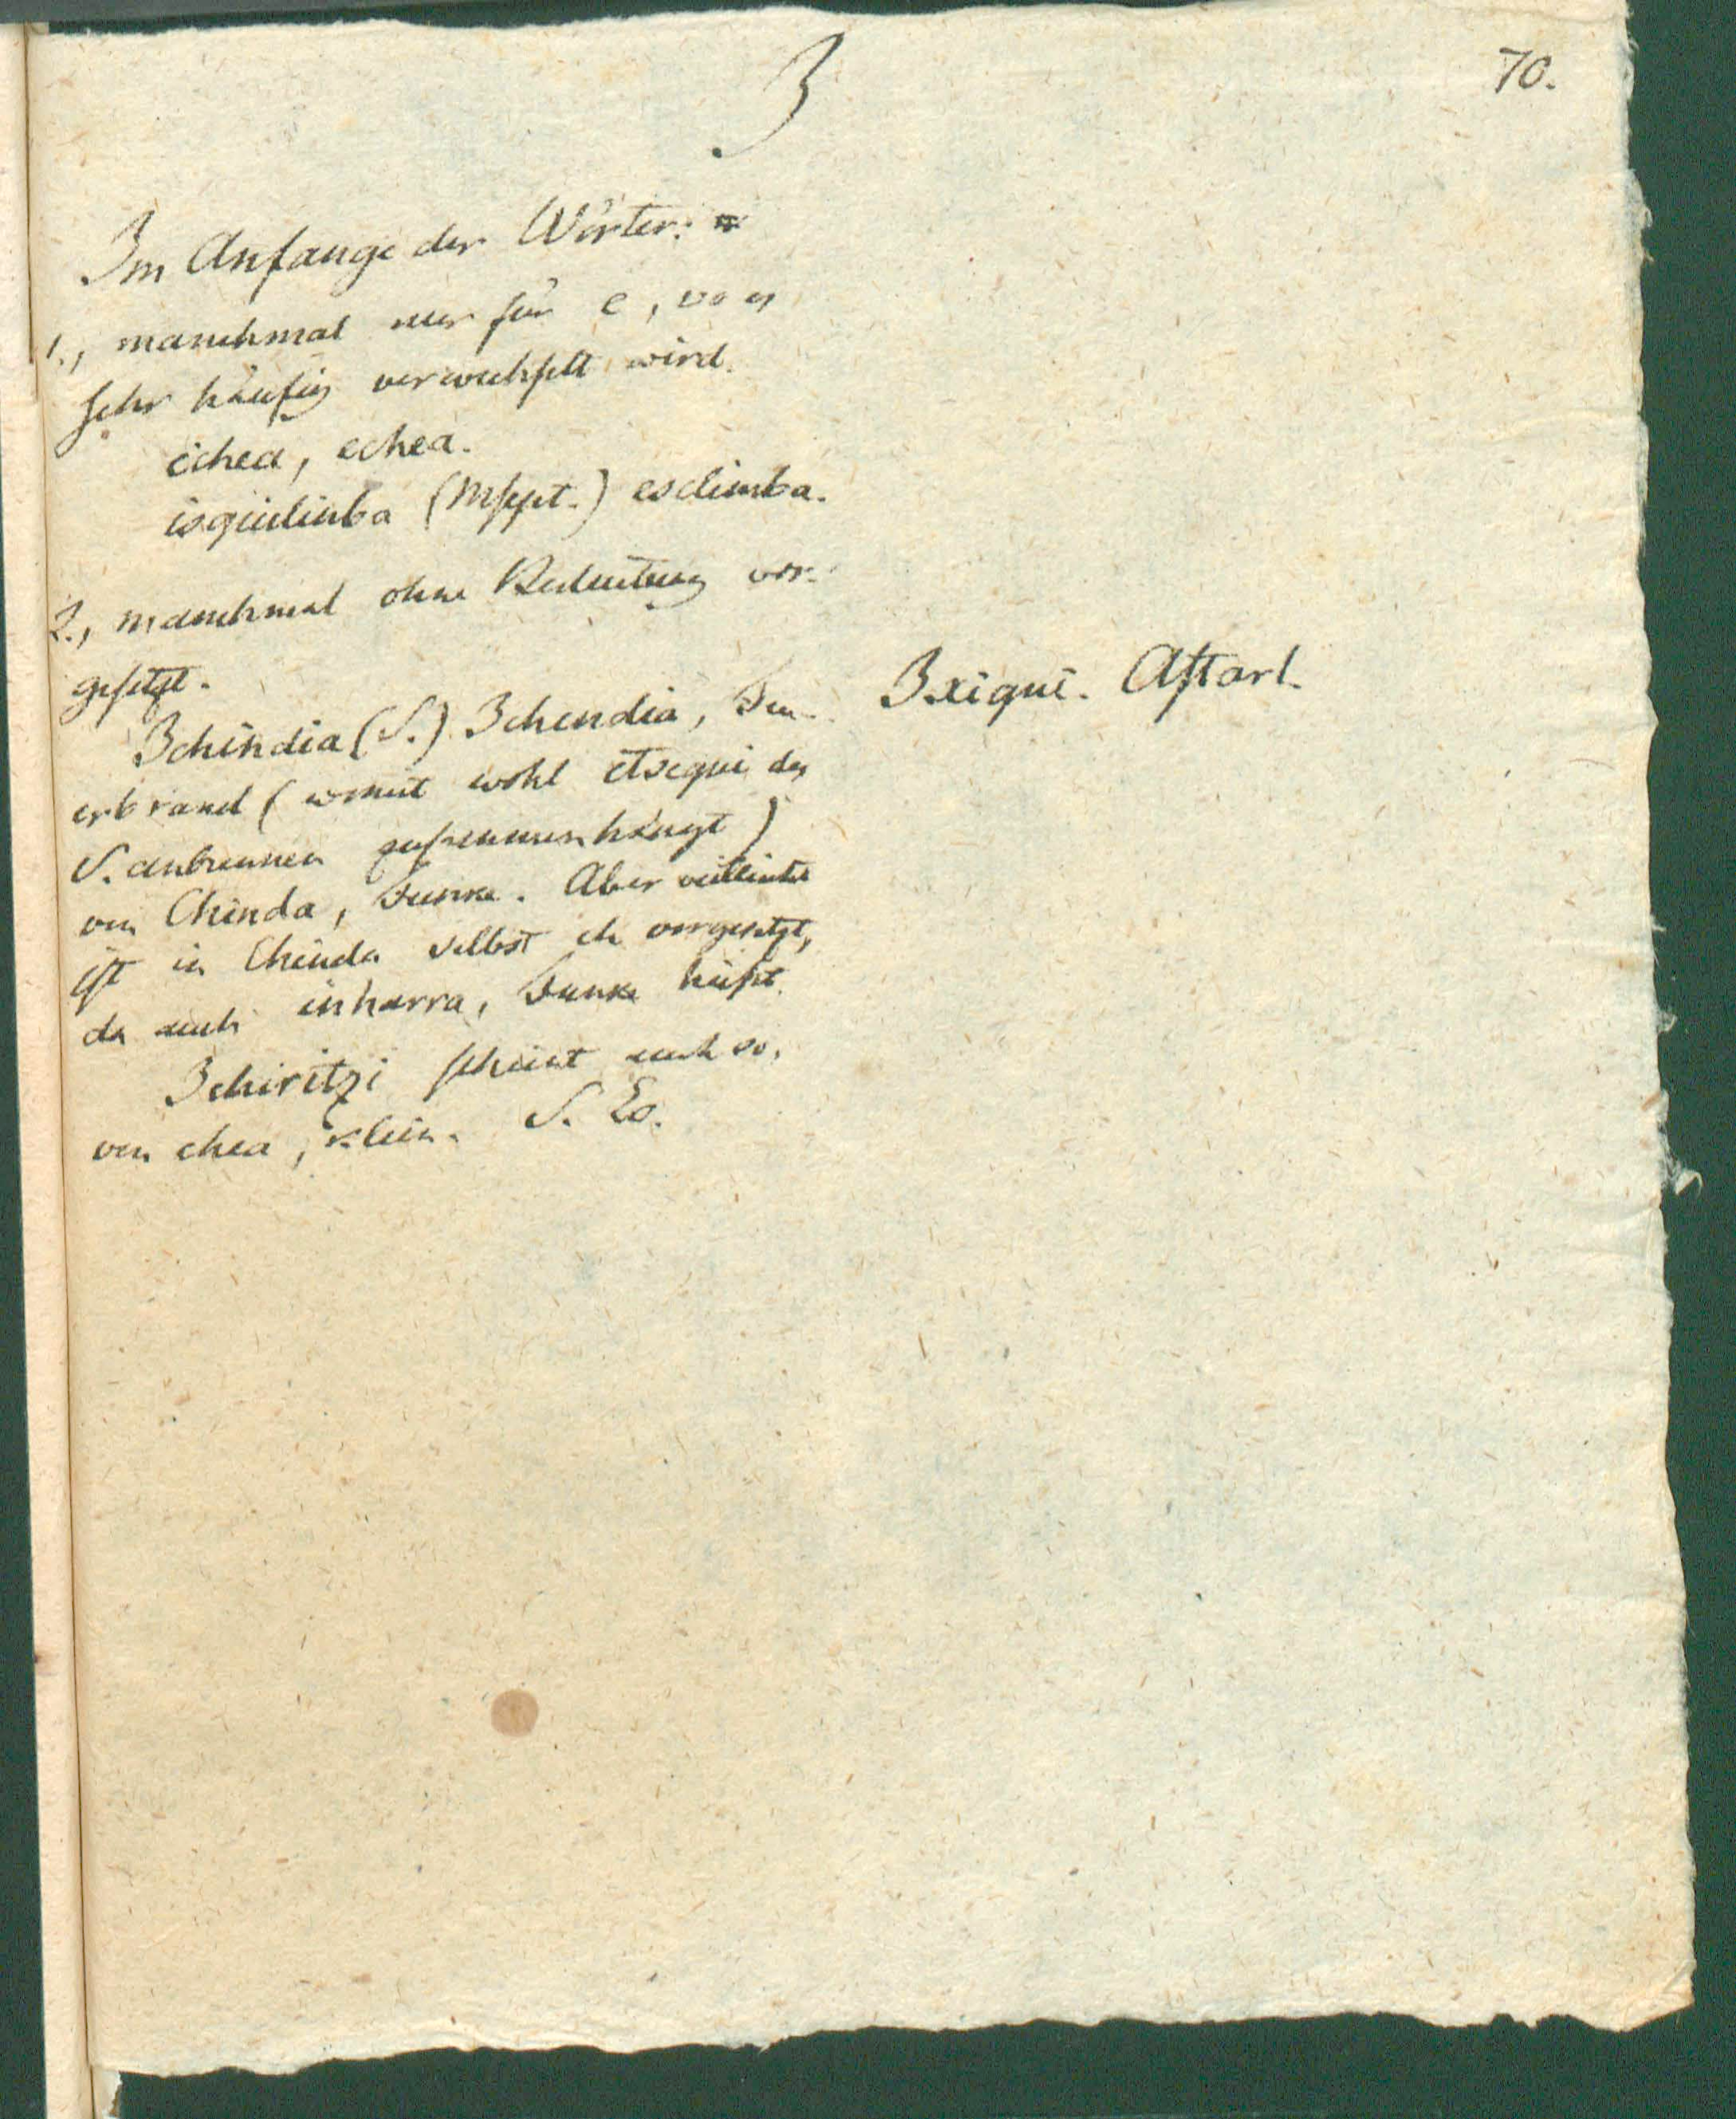 70.
I
Im Anfange der Wörter:
1., manchmal nur für e, wo es
sehr häufig verwechselt wird.
ichea, echea.
isquilinba (Mscpt.) esclimba.
2., manchmal ohne Bedeutung vor-
gesetzt.
Ichindia (S.) Ichendia, Feu-
erbrand (womit wohl itsequi des
S. anbrennen zusammenhängt)
von Chinda, Funke. Aber vielleicht
ist in Chinda selbst ch vorgesetzt,
da auch inharra, Funke heißt.
Ichiritzi scheint auch so,
von chea, klein. S. Es.
Ixiqui. Astarl.